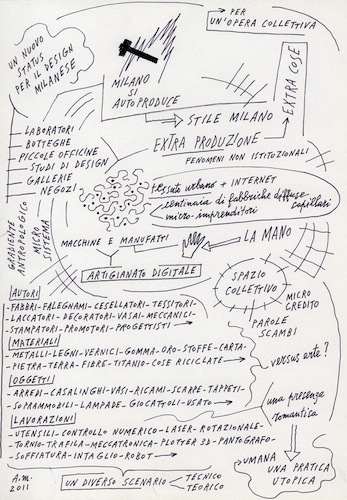 PER
UN'OPERA COLLETTIVA
UN NUOVO
STATUS
PER IL DESIGN
MILANESE
MILANO
SI
AUTOPRODUCE
STILE MILANO
EXTRA COSE
EXTRA PRODUZIONE
FENOMENI NON ISTITUZIONALI
LABORATORI
BOTTEGHE
PICCOLE OFFICINE
STUDI DI DESIGN
GALLERIE
NEGOZI
tessuto urbano + INTERNET
centinaia di fabbriche diffuse
capillari
micro-imprenditori
GRADIENTE
ANTROPOLOGICO
MICRO
SISTEMA
MACCHINE E MANUFATTI
LA MANO
ARTIGIANATO DIGITALE
SPAZIO
COLLETTIVO
MICRO
CREDITO
PAROLE
SCAMBI
versus arte?
AUTORI
FABBRI-FALEGNAMI-CESELLATORI-TESSITORI-
LACCATORI-DECORATORI-VASAI-MECCANICI-
STAMPATORI-PROMOTORI-PROGETTISTI
MATERIALI
METALLI-LEGNI-VERNICI-GOMMA-ORO-STOFFE-CARTA-
PIETRA-TERRA-FIBRE-TITANIO-COSE RICICLATE
OGGETTI
ARREDI-CASALINGHI-VASI-RICAMI-SCARPE-TAPPETI-
SOPRAMMOBILI-LAMPADE-GIOCATTOLI-USATO
LAVORAZIONI
UTENSILI-CONTROLLO NUMERICO-LASER-ROTAZIONALE-
TORNIO-TRAFILA-MECCATRONICA-PLOTTER 3D-PANTOGRAFO-
SOFFIATURA-INTAGLIO-ROBOT
una presenza
romantica
UMANA
UNA PRATICA
UTOPICA
A.M.
2011
UN DIVERSO SCENARIO
TECNICO
TEORICO